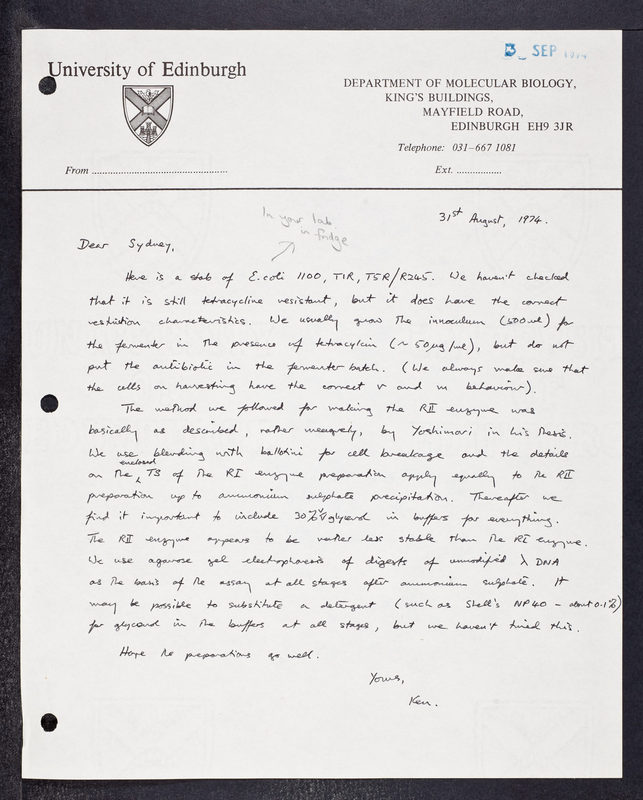 3 SEP 1974
University of Edinburgh
DEPARTMENT OF MOLECULAR BIOLOGY,
KING'S BUILDINGS,
MAYFIELD ROAD,
EDINBURGH EH9 3JR
Telephone: 031-667 1081
From ................................................
Ext. ................
In your lab
in fridge
31st August, 1974.
Dear Sydney,
Here is a stab of E.coli 1100, T1R, T5R/R245. We haven't checked
that it is still tetracycline resistant, but it does have the correct
restriction characteristics. We usually grow the innoculum (500ml) for
the fermenter in the presence of tetracyclin (~ 50µg/ml), but do not
put the antibiotic in the fermenter batch. (We always make sure that
the cells on harvesting have the correct r and m behaviour).
The method we followed for making the RII enzyme was
basically as described, rather meagrely, by Yoshimori in his thesis.
We use blending with ballotini for cell breakage and the details
on the enclosed TS of the RI enzyme preparation apply equally to the RII
preparation up to ammonium sulphate precipitation. Thereafter we
find it important to include 30% v/v glycerol in buffers for everything.
The RII enzyme appears to be rather less stable than the RI enzyme.
We use agarose gel electrophoresis of digests of unmodified λ DNA
as the basis of the assay at all stages after ammonium sulphate. It
may be possible to substitute a detergent (such as Shell's NP40 - about 0.1%)
for glycerol in the buffers at all stages, but we haven't tried this.
Hope the preparations go well.
Yours,
Ken.